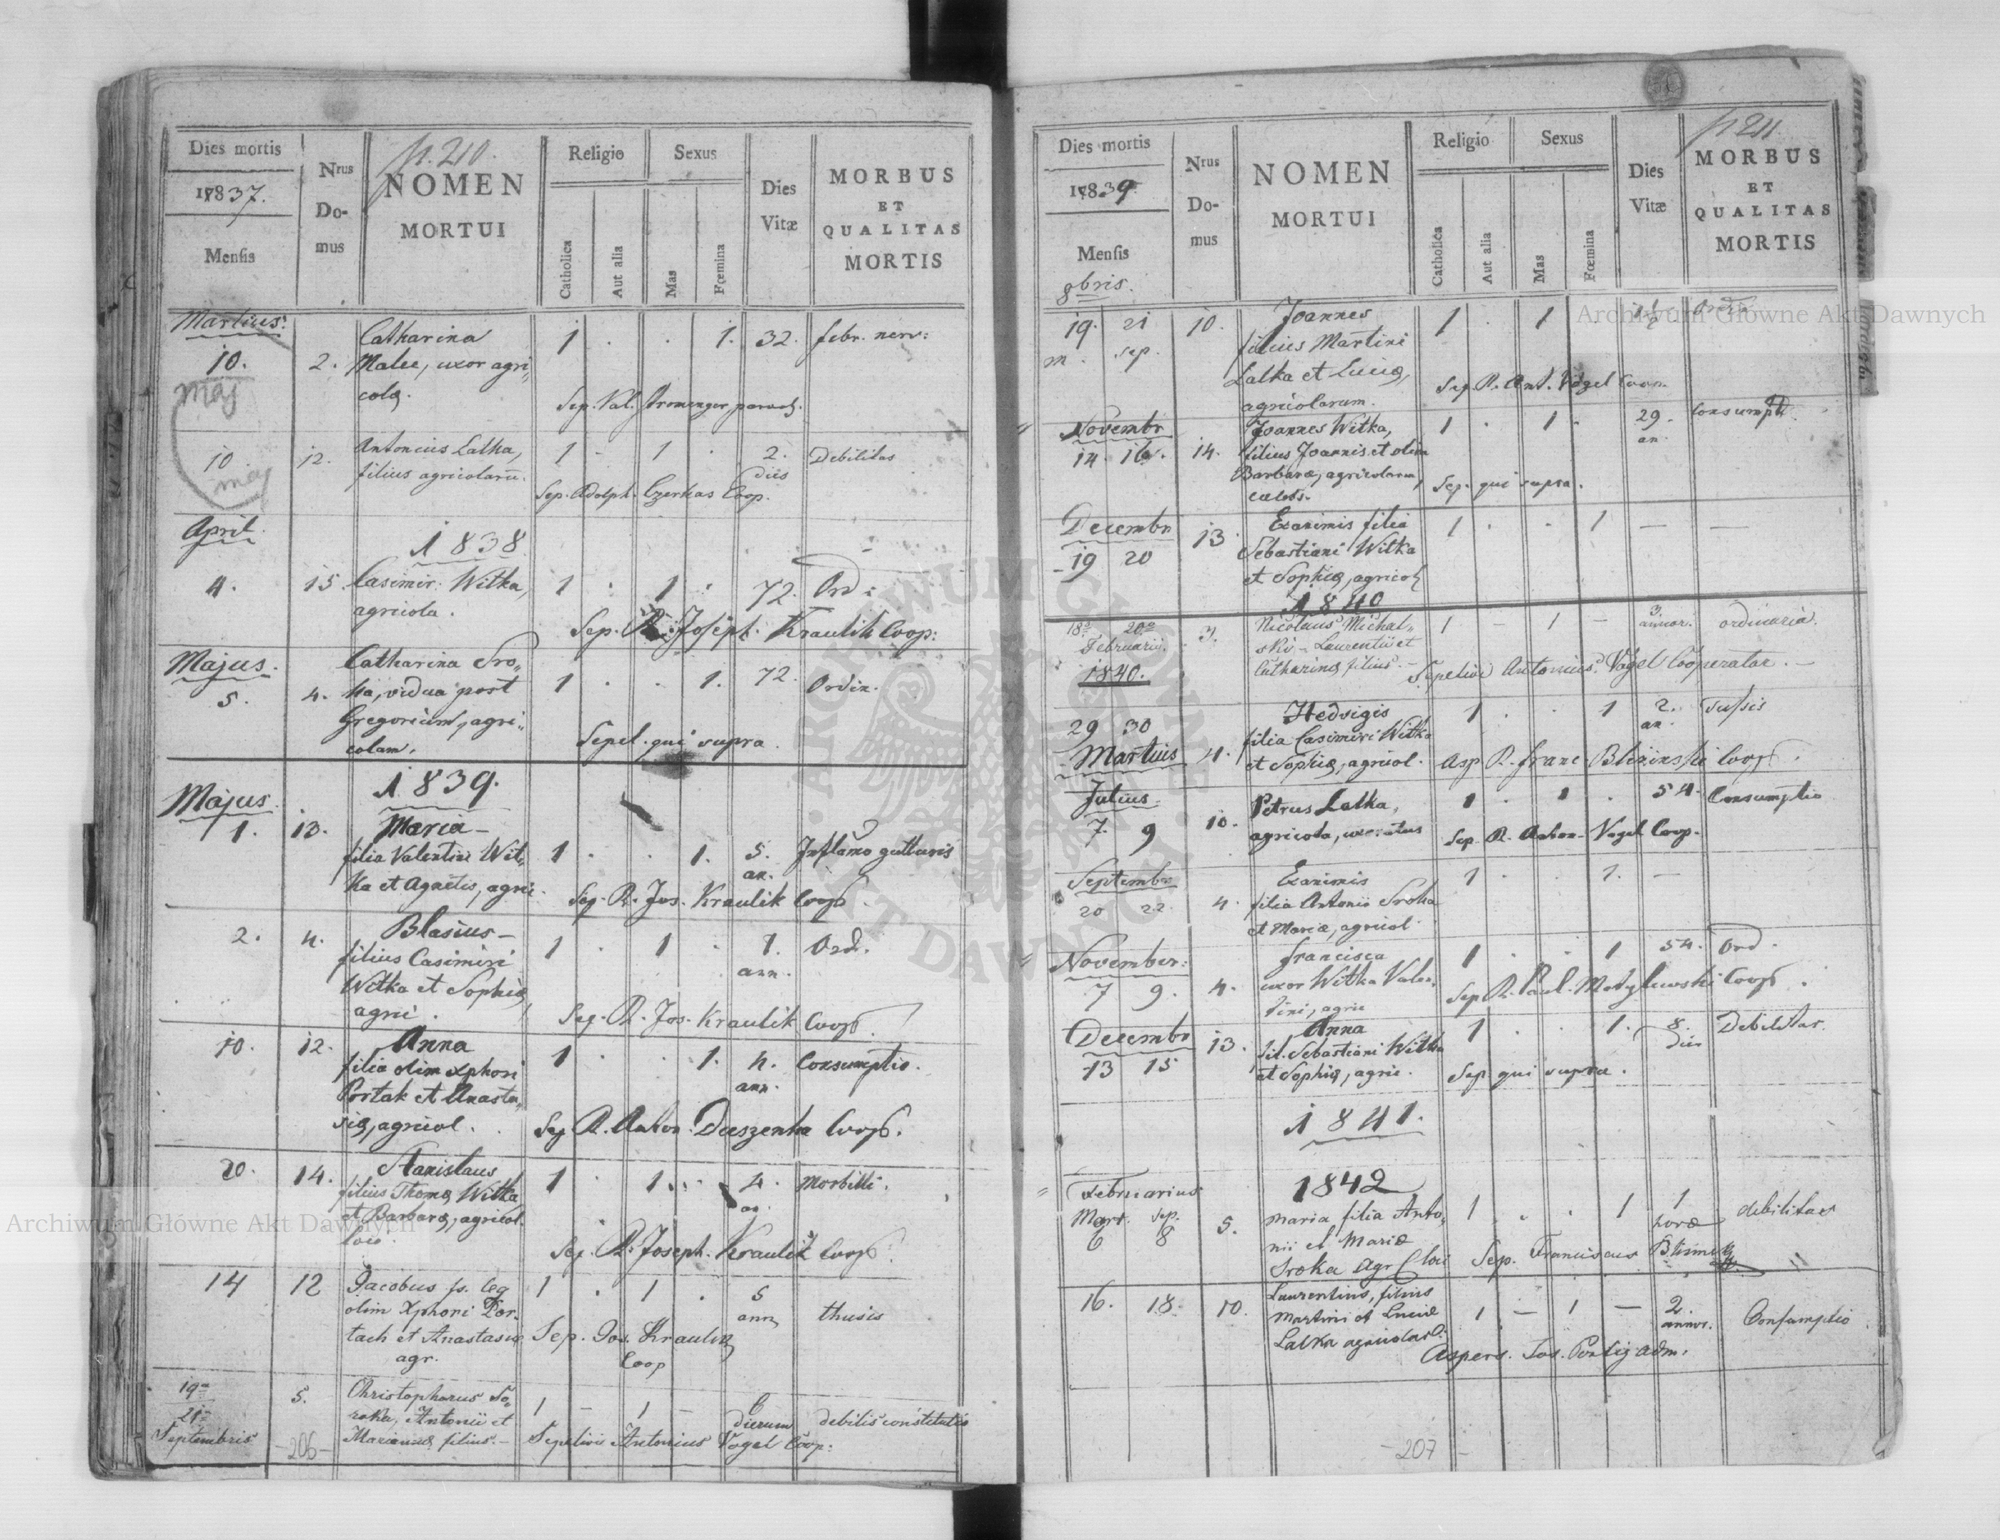 p. 210.
Dies mortis
1837.
Mensis
Nrus
Do-
mus
NOMEN
MORTUI
Religio
Catholica
Aut alia
Sexus
Mas
Fœmina
Dies
Vitæ
MORBUS
ET
QUALITAS
MORTIS
Martius.
10. 2. Catharina 1 . . 1. 32. febr. nerv:
Malec, uxor agri-
colæ.
Sep. Val. paroch.
maj
10 12. Antonius Latka, 1 - 1 . 2. Debilitas
maj
filius agricolarū. dies
Sep. Adolph. Czerkas Coop.
April.
1838
4. 15. Casimir. Witka, 1 . 1 . 72. Ord:
agricola.
Sep. R. Joseph. Kraulik Coop:
Majus.
5. 4. Catharina Sro- 1 . . 1. 72. Ordin.
ka, vidua post
Gregorium, agri-
colam.
Sepel. qui supra.
1839.
Majus
1. 13. Maria
filia Valentini Wit- 1 . . 1. 5. Inflamo gutturis
ka et Agnetis, agric. an.
Sep. R. Jos. Kraulik Coop.
2. 4. Blasius
filius Casimiri 1 . 1 . 1. Ord.
Witka et Sophiæ, ann.
agric.
Sep. R. Jos. Kraulik Coop.
10. 12. Anna
filia olim Xphori 1 . . 1. 4. Consumptio.
Portak et Anasta- ann.
siæ, agricol.
Sep. R. Anton. Duszenka Coop.
20. 14. Stanislaus
filius Thomæ Witka 1 . 1 . 4. Morbilli.
et Barbaræ, agricol. an.
loci.
Sep. R. Joseph. Kraulik Coop.
14 12 Jacobus fs. leg 1 . 1 . 5 thusis
olim Xphori Por- ann
tach et Anastasiæ
agr.
Sep. Jos. Kraulik
Coop
19a 5. Christophorus So- 1 - 1 - 6 debilis constitutio
21a roka, Antonii et dierum
Septembris Mariannæ filius.
Sepelivit Antonius Vogel Coop:
-206-
p. 211.
Dies mortis
1839.
Mensis
8bris.
Nrus
Do-
mus
NOMEN
MORTUI
Religio
Catholica
Aut alia
Sexus
Mas
Fœmina
Dies
Vitæ
MORBUS
ET
QUALITAS
MORTIS
19. 21 10. Joannes 1 . 1
m. sep. filius Martini
Latka et Luciæ,
agricolarum.
Sep. R. Ant. Vogel Coop.
Novembr
14. 16. 14. Joannes Witka, 1 . 1 . 29. Consumpti
filius Joannis et olim an.
Barbaræ, agricolarum,
cælebs.
Sep. qui supra.
Decembr
19 20 13. Exanimis filia 1 . . 1 — —
Sebastiani Witka
et Sophiæ, agricol
1840
18a 20a 3. Nicolaus Michal- 1 - 1 - 3. ordinaria.
Februarii ski - Laurentii et annor.
1840. Catharinæ filius. -
Sepelivit Antonius Vogel Cooperator. -
29 30 Hedvigis 1 . . 1 2. Tussis
Martius 4. filia Casimiri Witka an.
et Sophiæ, agricol.
Asp. R. Franc Coop.
Julius.
7. 9 10. Petrus Latka, 1 . 1 . 54. Consumptio
agricola, uxoratus
Sep. R. Anton. Vogel Coop.
Septembr
20 22 4. Exanimis 1 . . 1. —
filia Antonii Sroka
et Mariæ, agricol.
November:
7 9. 4. Francisca 1 . . 1 54. Ord.
uxor Witka Valen-
tini, agric
Sep. R. Paul. Matylewski Coop.
Decembr
13 15 13. Anna 1 . . 1. 8. Debilitas.
fil. Sebastiani Witka dies
et Sophiæ, agric.
Sep. qui supra.
1841.
1842
Februarius
Mort. sep. 5. Maria filia Anto- 1 . . 1 1 debilitas
6 8 nii et Mariæ horæ
Sroka Agr loci
Sep. Franciscus
16. 18. 10. Laurentius, filius 1 — 1 — 2. Consumptio
Martini et Luciæ annor.
Latka agricolar.
Aspers. Jos. Portig adm.
-207-
Archiwum Główne Akt Dawnych
Archiwum Główne Akt Dawnych
ARCHIWUM GŁÓWNE AKT DAWNYCH